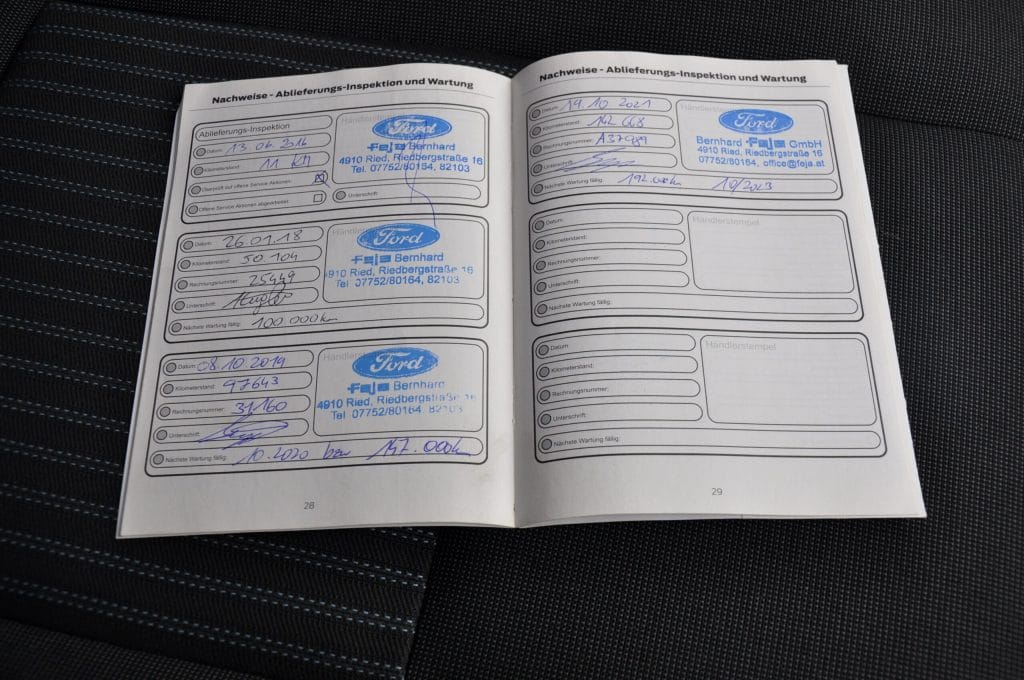 Nachweise - Ablieferungs-Inspektion und Wartung
Ablieferungs-Inspektion
Datum: 13 06.2016
Kilometerstand: 11 KM
Überprüft auf offene Service Aktionen:
Offene Service Aktionen abgearbeitet:
Händlerstempel
Ford
Feja Bernhard
4910 Ried, Riedbergstraße 16
Tel. 07752/80164, 82103
Unterschrift:
Datum: 26.01.18
Kilometerstand: 50 104
Rechnungsnummer: 25449
Unterschrift:
Nächste Wartung fällig: 100.000km
Händlerstempel
Ford
Feja Bernhard
4910 Ried, Riedbergstraße 16
Tel 07752/80164, 82103
Datum: 08.10.2019
Kilometerstand: 97643
Rechnungsnummer: 31160
Unterschrift:
Nächste Wartung fällig: 10.2020 bzw 147.000km
Händlerstempel
Ford
Feja Bernhard
4910 Ried, Riedbergstraße 16
Tel 07752/80164, 82103
28
Nachweise - Ablieferungs-Inspektion und Wartung
Datum: 19.10.2021
Kilometerstand: 142 668
Rechnungsnummer: A37989
Unterschrift:
Nächste Wartung fällig: 192.000km 10/2023
Händlerstempel
Ford
Bernhard Feja GmbH
4910 Ried, Riedbergstraße 16
07752/80164, office@feja.at
Datum:
Kilometerstand:
Rechnungsnummer:
Unterschrift:
Nächste Wartung fällig:
Händlerstempel
Datum:
Kilometerstand:
Rechnungsnummer:
Unterschrift:
Nächste Wartung fällig:
Händlerstempel
29